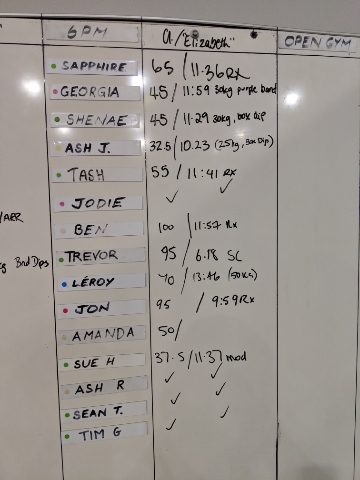 6PM
a/"Elizabeth"
OPEN GYM
SAPPHIRE 65 / 11:36 Rx
GEORGIA 45 / 11:59 30kg purple band
SHENAE 45 / 11:29 30kg, box dip
ASH J. 32.5 / 10.23 (25kg, Box Dip)
TASH 55 / 11:41 Rx
JODIE ✓ ✓
BEN 100 / 11:57 Rx
TREVOR 95 / 6.18 SC
Band Dips
LEROY 70 / 13:46 (50KG)
JON 95 / 9:59 Rx
AMANDA 50/
SUE H 37.5 / 11:37 mod
ASH R ✓ ✓
SEAN T. ✓ ✓
TIM G ✓ ✓